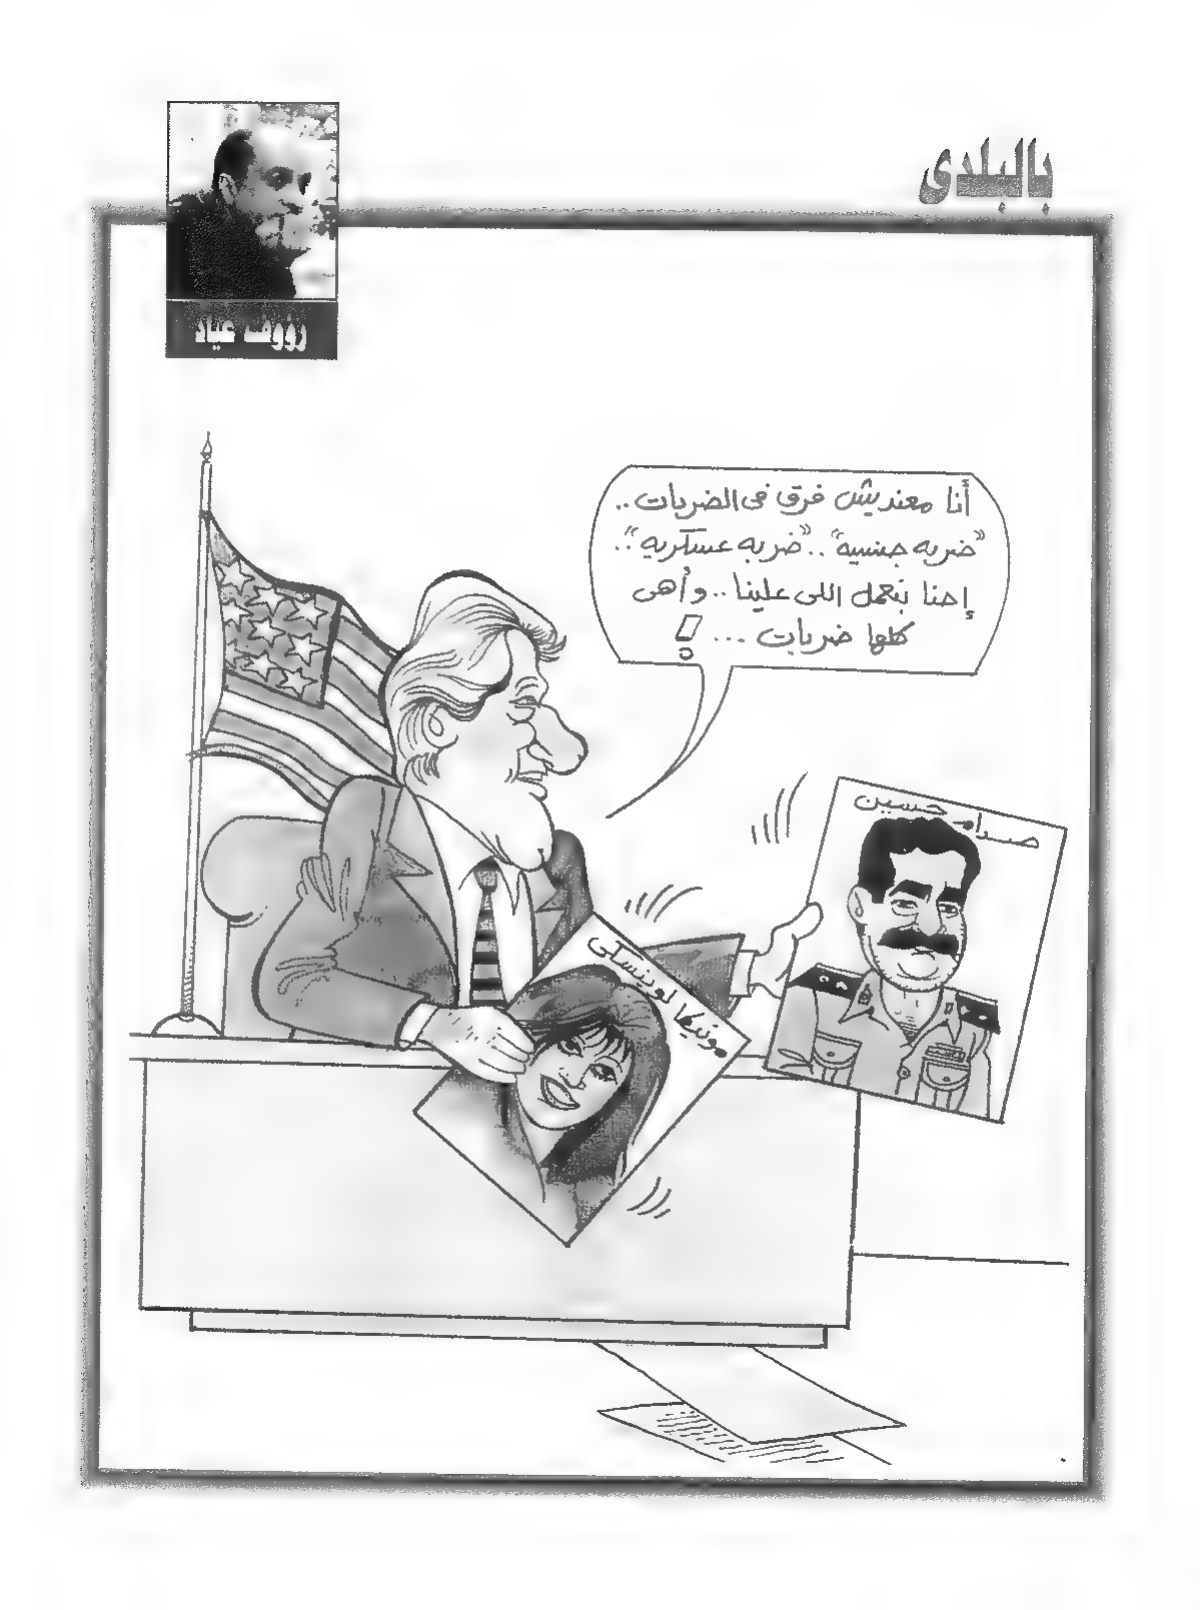 بالبلدى
رؤوف عياد
أنا معنديش فرق فى الضربات ..
"ضربه جنسية" .. "ضربه عسكريه" ..
إحنا بنعمل اللى علينا .. وأهى
كلها ضربات ... !
صدام حسين
مونيكا لوينسكى